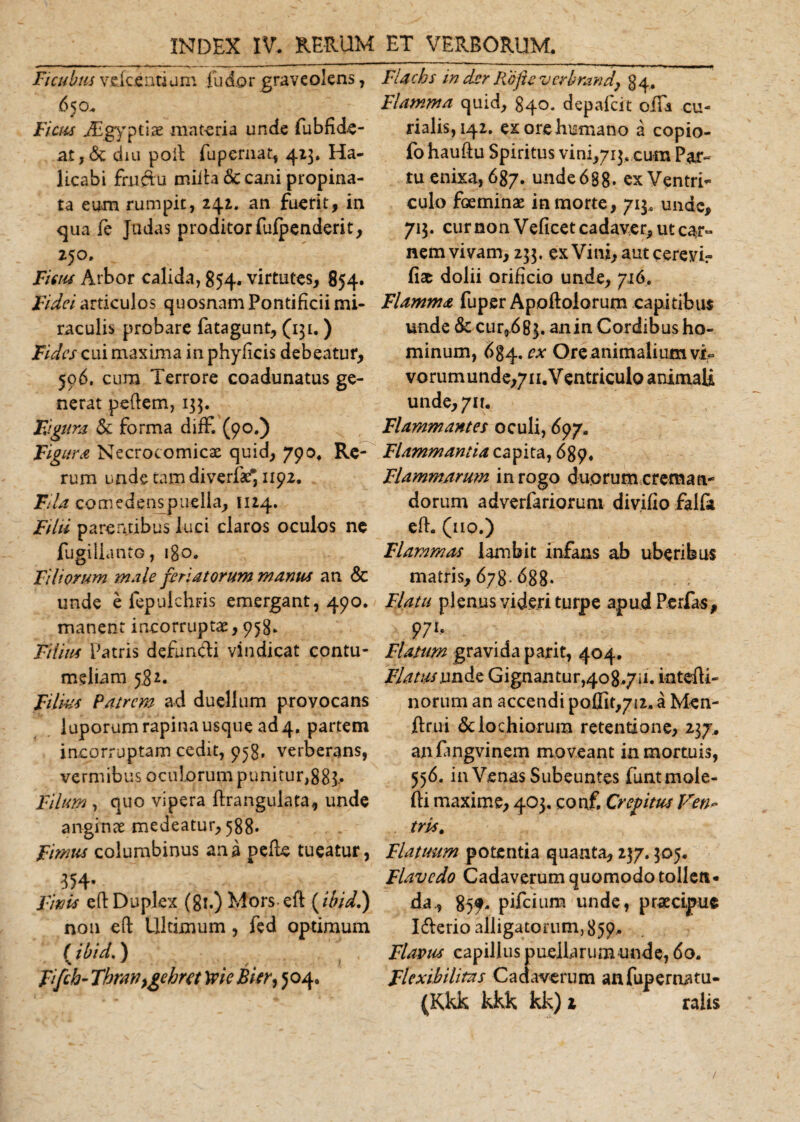 INDEX IV. RERUM ET VERBORUM.
Ficubus vescentium sudor graveolens,
650.
Ficus Ægyptiæ materia unde subside-
at, & diu post supernat, 423. Ha-
licabi fructu mista & cani propina-
ta eum rumpit, 242. an fuerit, in
qua se Judas proditor suspenderit,
250.
Ficus Arbor calida, 854. virtutes, 854.
Fidei articulos quosnam Pontificii mi-
raculis probare satagunt, (131.)
Fides cui maxima in physicis debeatur,
596. cum Terrore coadunatus ge-
nerat pestem, 133.
Figura & forma diff. (90.)
Figuræ Necrocomicæ quid, 790. Re-
rum unde tam diversæ, 1192.
Fila comedens puella, 1124.
Filii parentibus luci claros oculos ne
sugillanto, 180.
Filiorum male feriatorum manus an &
unde è sepulchris emergant, 490.
manent incorruptæ, 958.
Filius Patris defuncti vindicat contu-
meliam 582.
Filius Patrem ad duellum provocans
luporum rapina usque ad 4. partem
incorruptam cedit, 958. verberans,
vermibus oculorum punitur, 883.
Filum, quo vipera strangulata, unde
anginæ medeatur, 588.
Fimus columbinus an à peste tueatur,
354.
Finis est Duplex (81.) Mors est (ibid.)
non est Ultimum, sed optimum
(ibid.)
Fisch-Thran, gehret wie Bier, 504.
Flachs in der Röste verbrand, 84.
Flamma quid, 840. depascit ossa cu-
rialis, 142. ex ore humano à copio-
so haustu Spiritus vini, 713. cum Par-
tu enixa, 687. unde 688. ex Ventri-
culo fœminæ in morte, 713. unde,
713. cur non Vesicet cadaver, ut car-
nem vivam, 233. ex Vini, aut cerevi-
siæ dolii orificio unde, 716.
Flammæ super Apostolorum capitibus
unde & cur, 683. an in Cordibus ho-
minum, 684. ex Ore animalium vi-
vorum unde, 711. Ventriculo animali
unde, 711.
Flammantes oculi, 697.
Flammantia capita, 689.
Flammarum in rogo duorum creman-
dorum adversariorum divisio falsa
est. (110.)
Flammas lambit infans ab uberibus
matris, 678. 688.
Flatu plenus videri turpe apud Persas,
971.
Flatum gravida parit, 404.
Flatus unde Gignantur, 408. 711. intesti-
norum an accendi possit, 712. à Men-
strui & lochiorum retentione, 237.
an sangvinem moveant in mortuis,
556. in Venas Subeuntes sunt mole-
sti maxime, 403. conf. Crepitus Ven-
tris.
Flatuum potentia quanta, 237. 305.
Flavedo Cadaverum quomodo tollen-
da, 859. piscium unde, præcipue
Icterio alligatorum, 859.
Flavus capillus puellarum unde, 60.
Flexibilitas Cadaverum an supernatu-
(Kkk kkk kk) 2 ralis